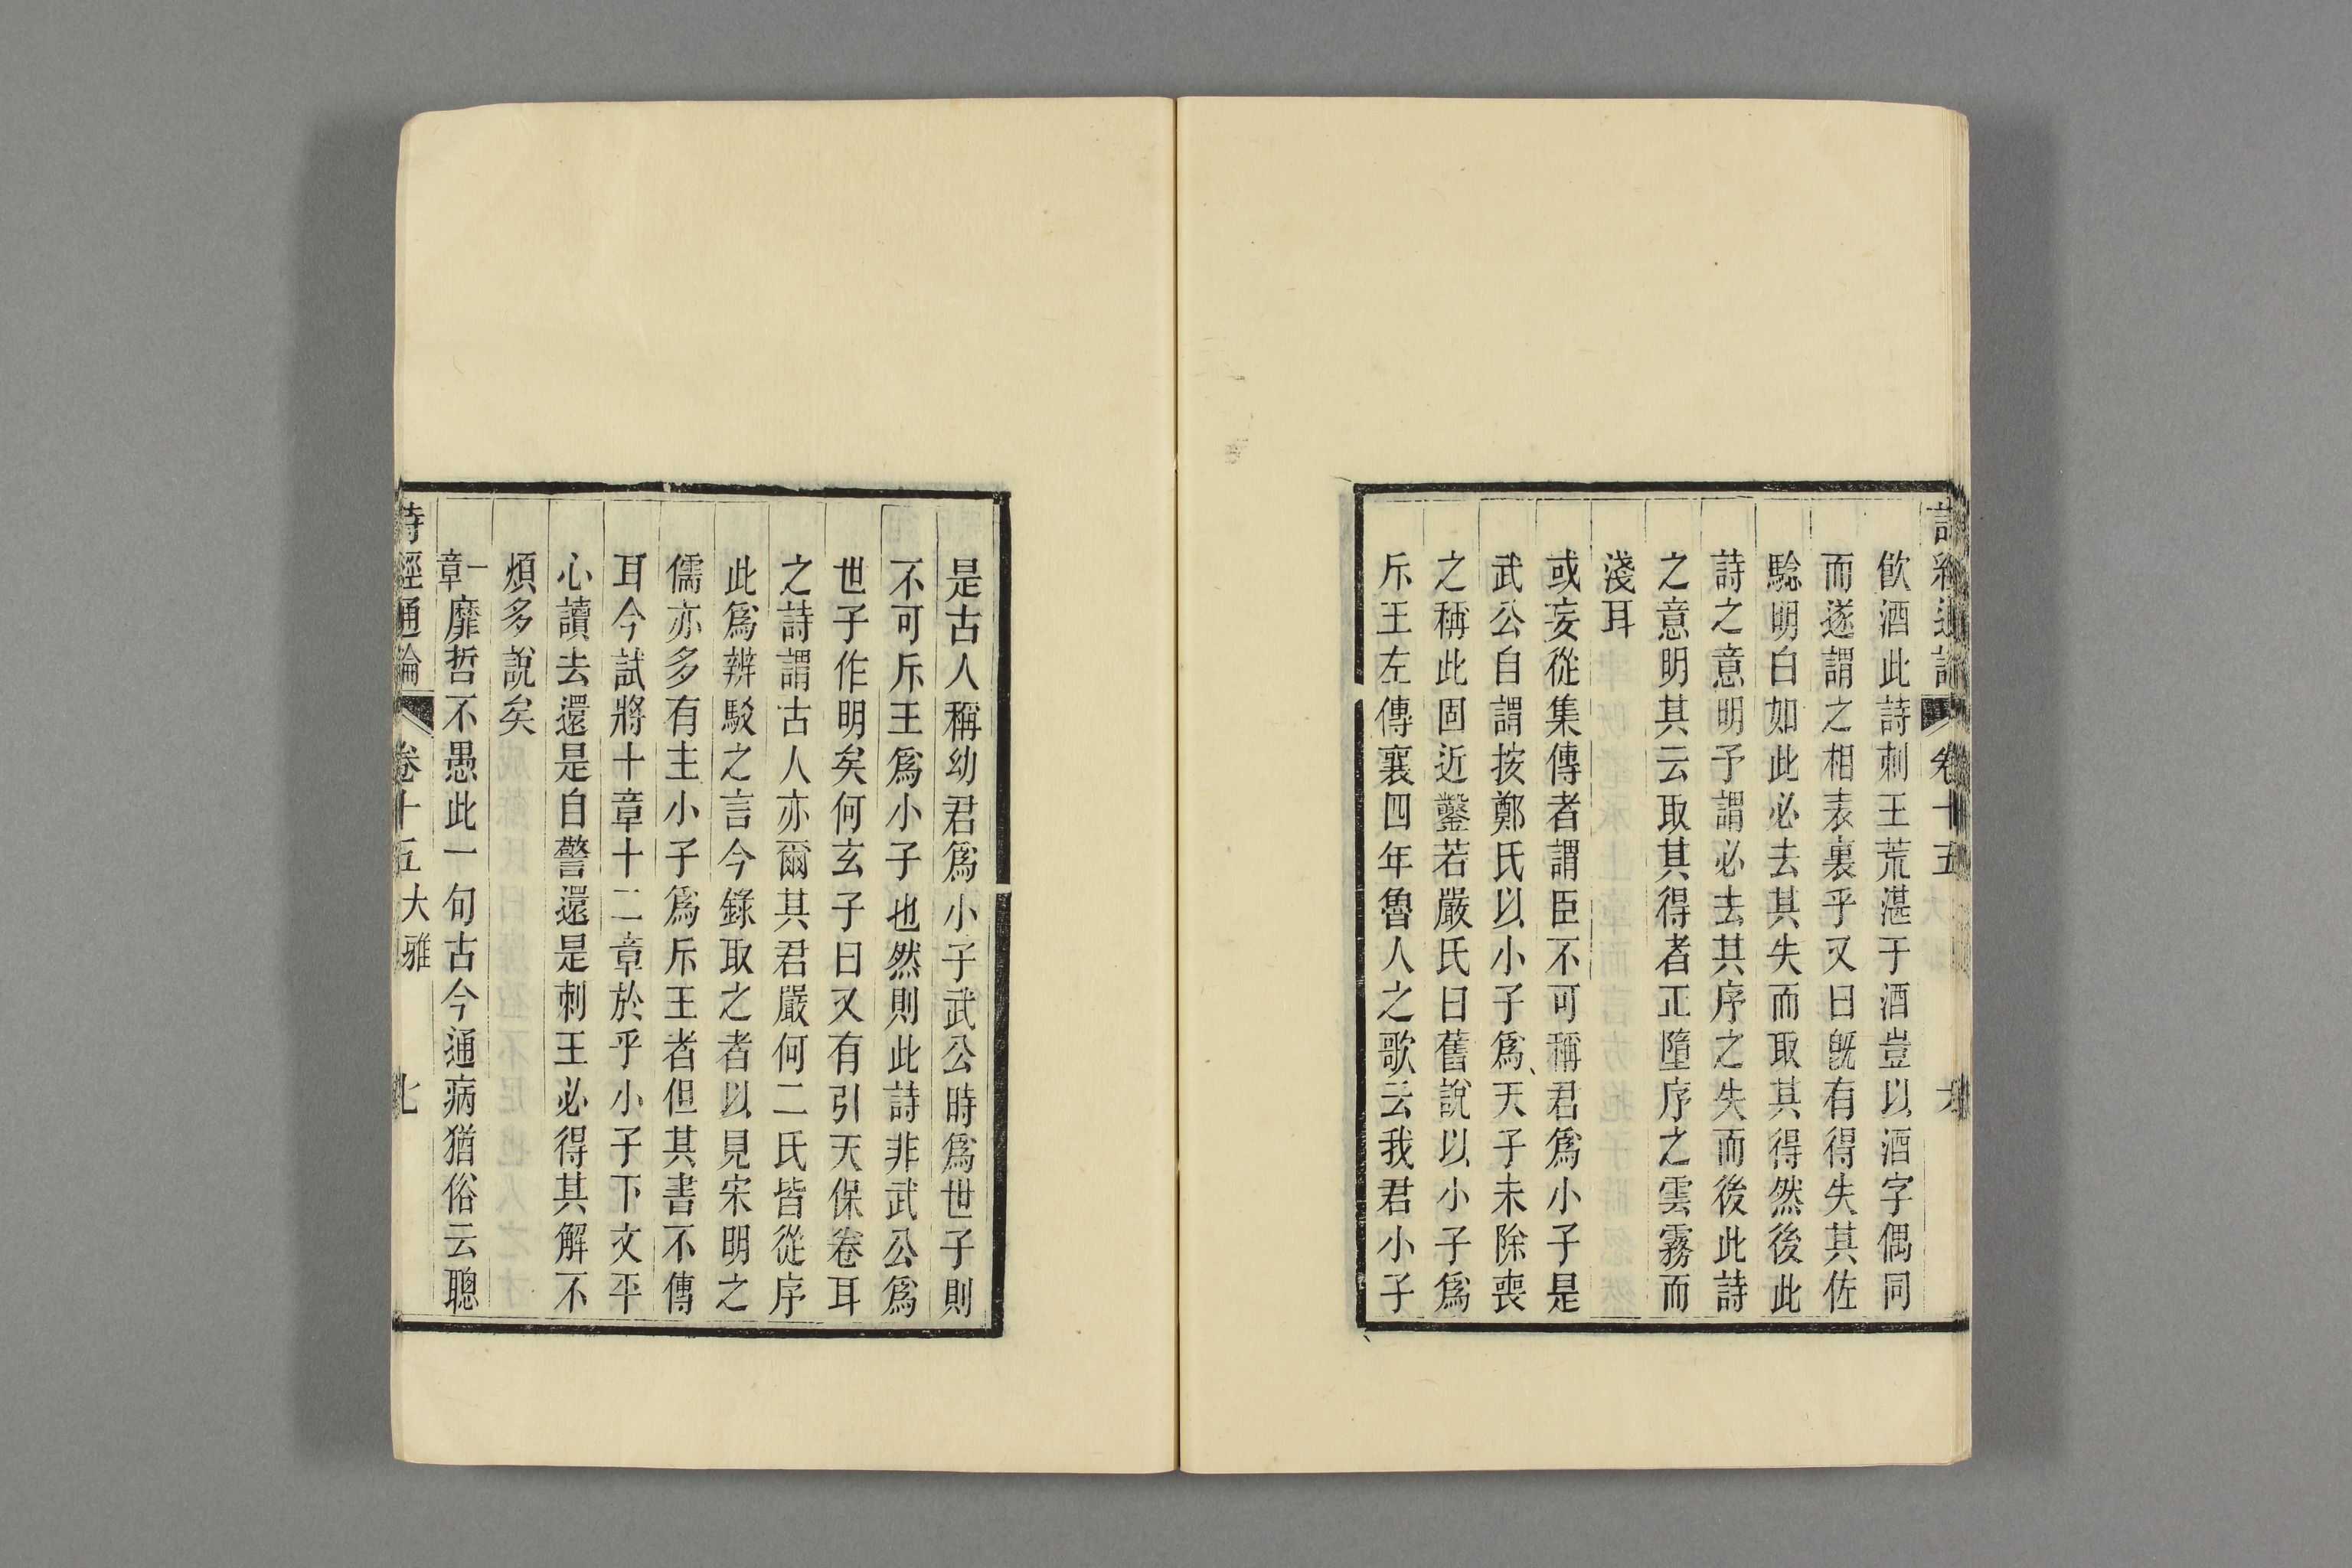 飲酒此詩刺王荒湛于酒豈以酒字偶同
而遂謂之相表裏乎又曰旣有得失其佐
驗明白如此必去其失而取其得然後此
詩之意明予謂必去其序之失而後此詩
之意明其云取其得者正墮序之雲霧而
淺耳
或妄從集傳者謂臣不可稱君爲小子是
武公自謂按鄭氏以小子爲天子未除喪
之稱此固近鑿若嚴氏曰舊說以小子爲
斥王左傳襄四年魯人之歌云我君小子
是古人稱幼君爲小子武公時爲世子則
不可斥王爲小子也然則此詩非武公爲
世子作明矣何玄子曰又有引天保卷耳
之詩謂古人亦爾其君嚴何二氏皆從序
此爲辨駁之言今錄取之者以見宋明之
儒亦多有主小子爲斥王者但其書不傳
耳今試將十章十二章於乎小子下文平
心讀去還是自警還是刺王必得其解不
煩多說矣
一章靡哲不愚此一句古今通病猶俗云聰
詩經通論 卷十五 大雅